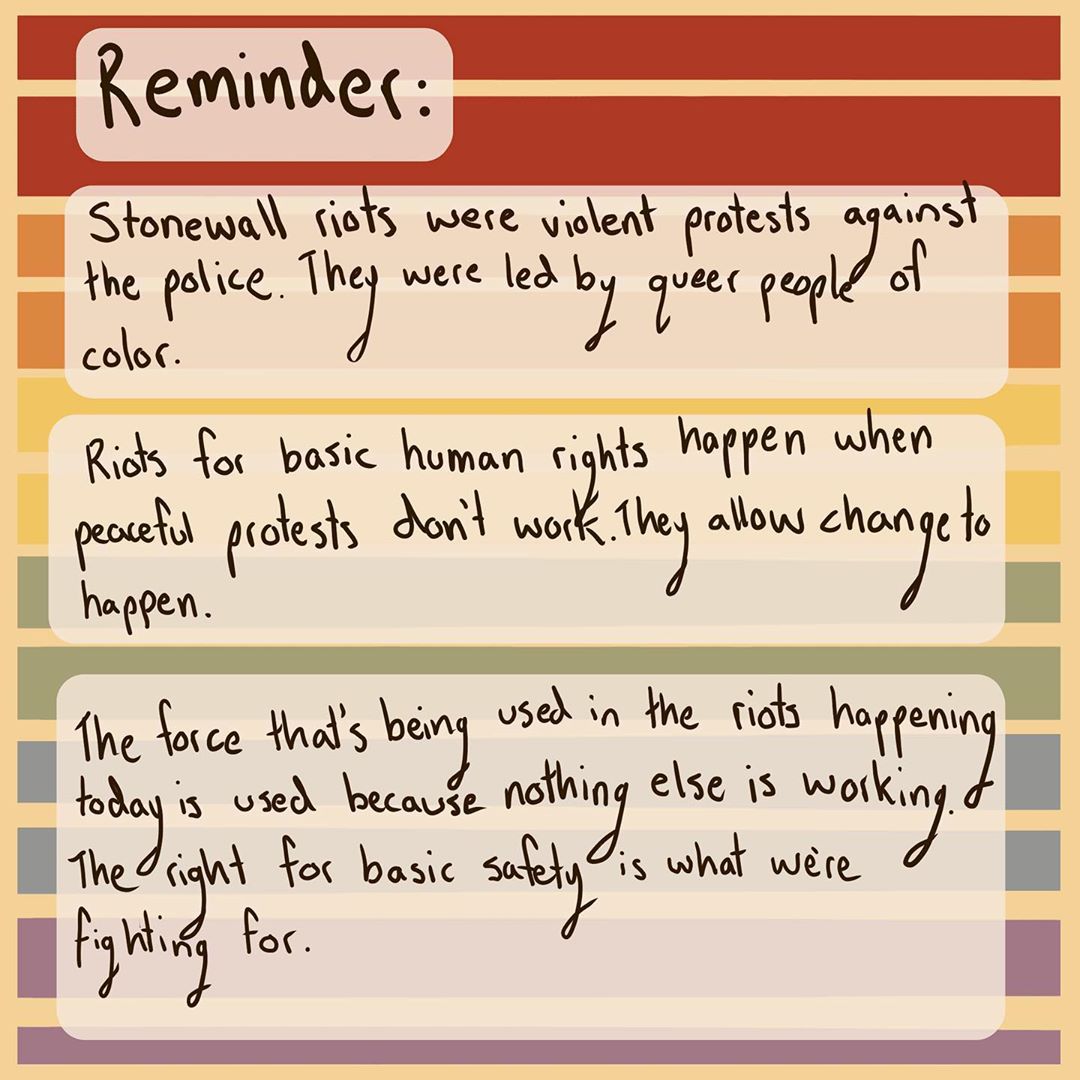 Reminder:
Stonewall riots were violent protests against
the police. They were led by queer people of
color.
Riots for basic human rights happen when
peaceful protests don't work. They allow change to
happen.
The force that's being used in the riots happening
today is used because nothing else is working.
The right for basic safety is what we're
fighting for.